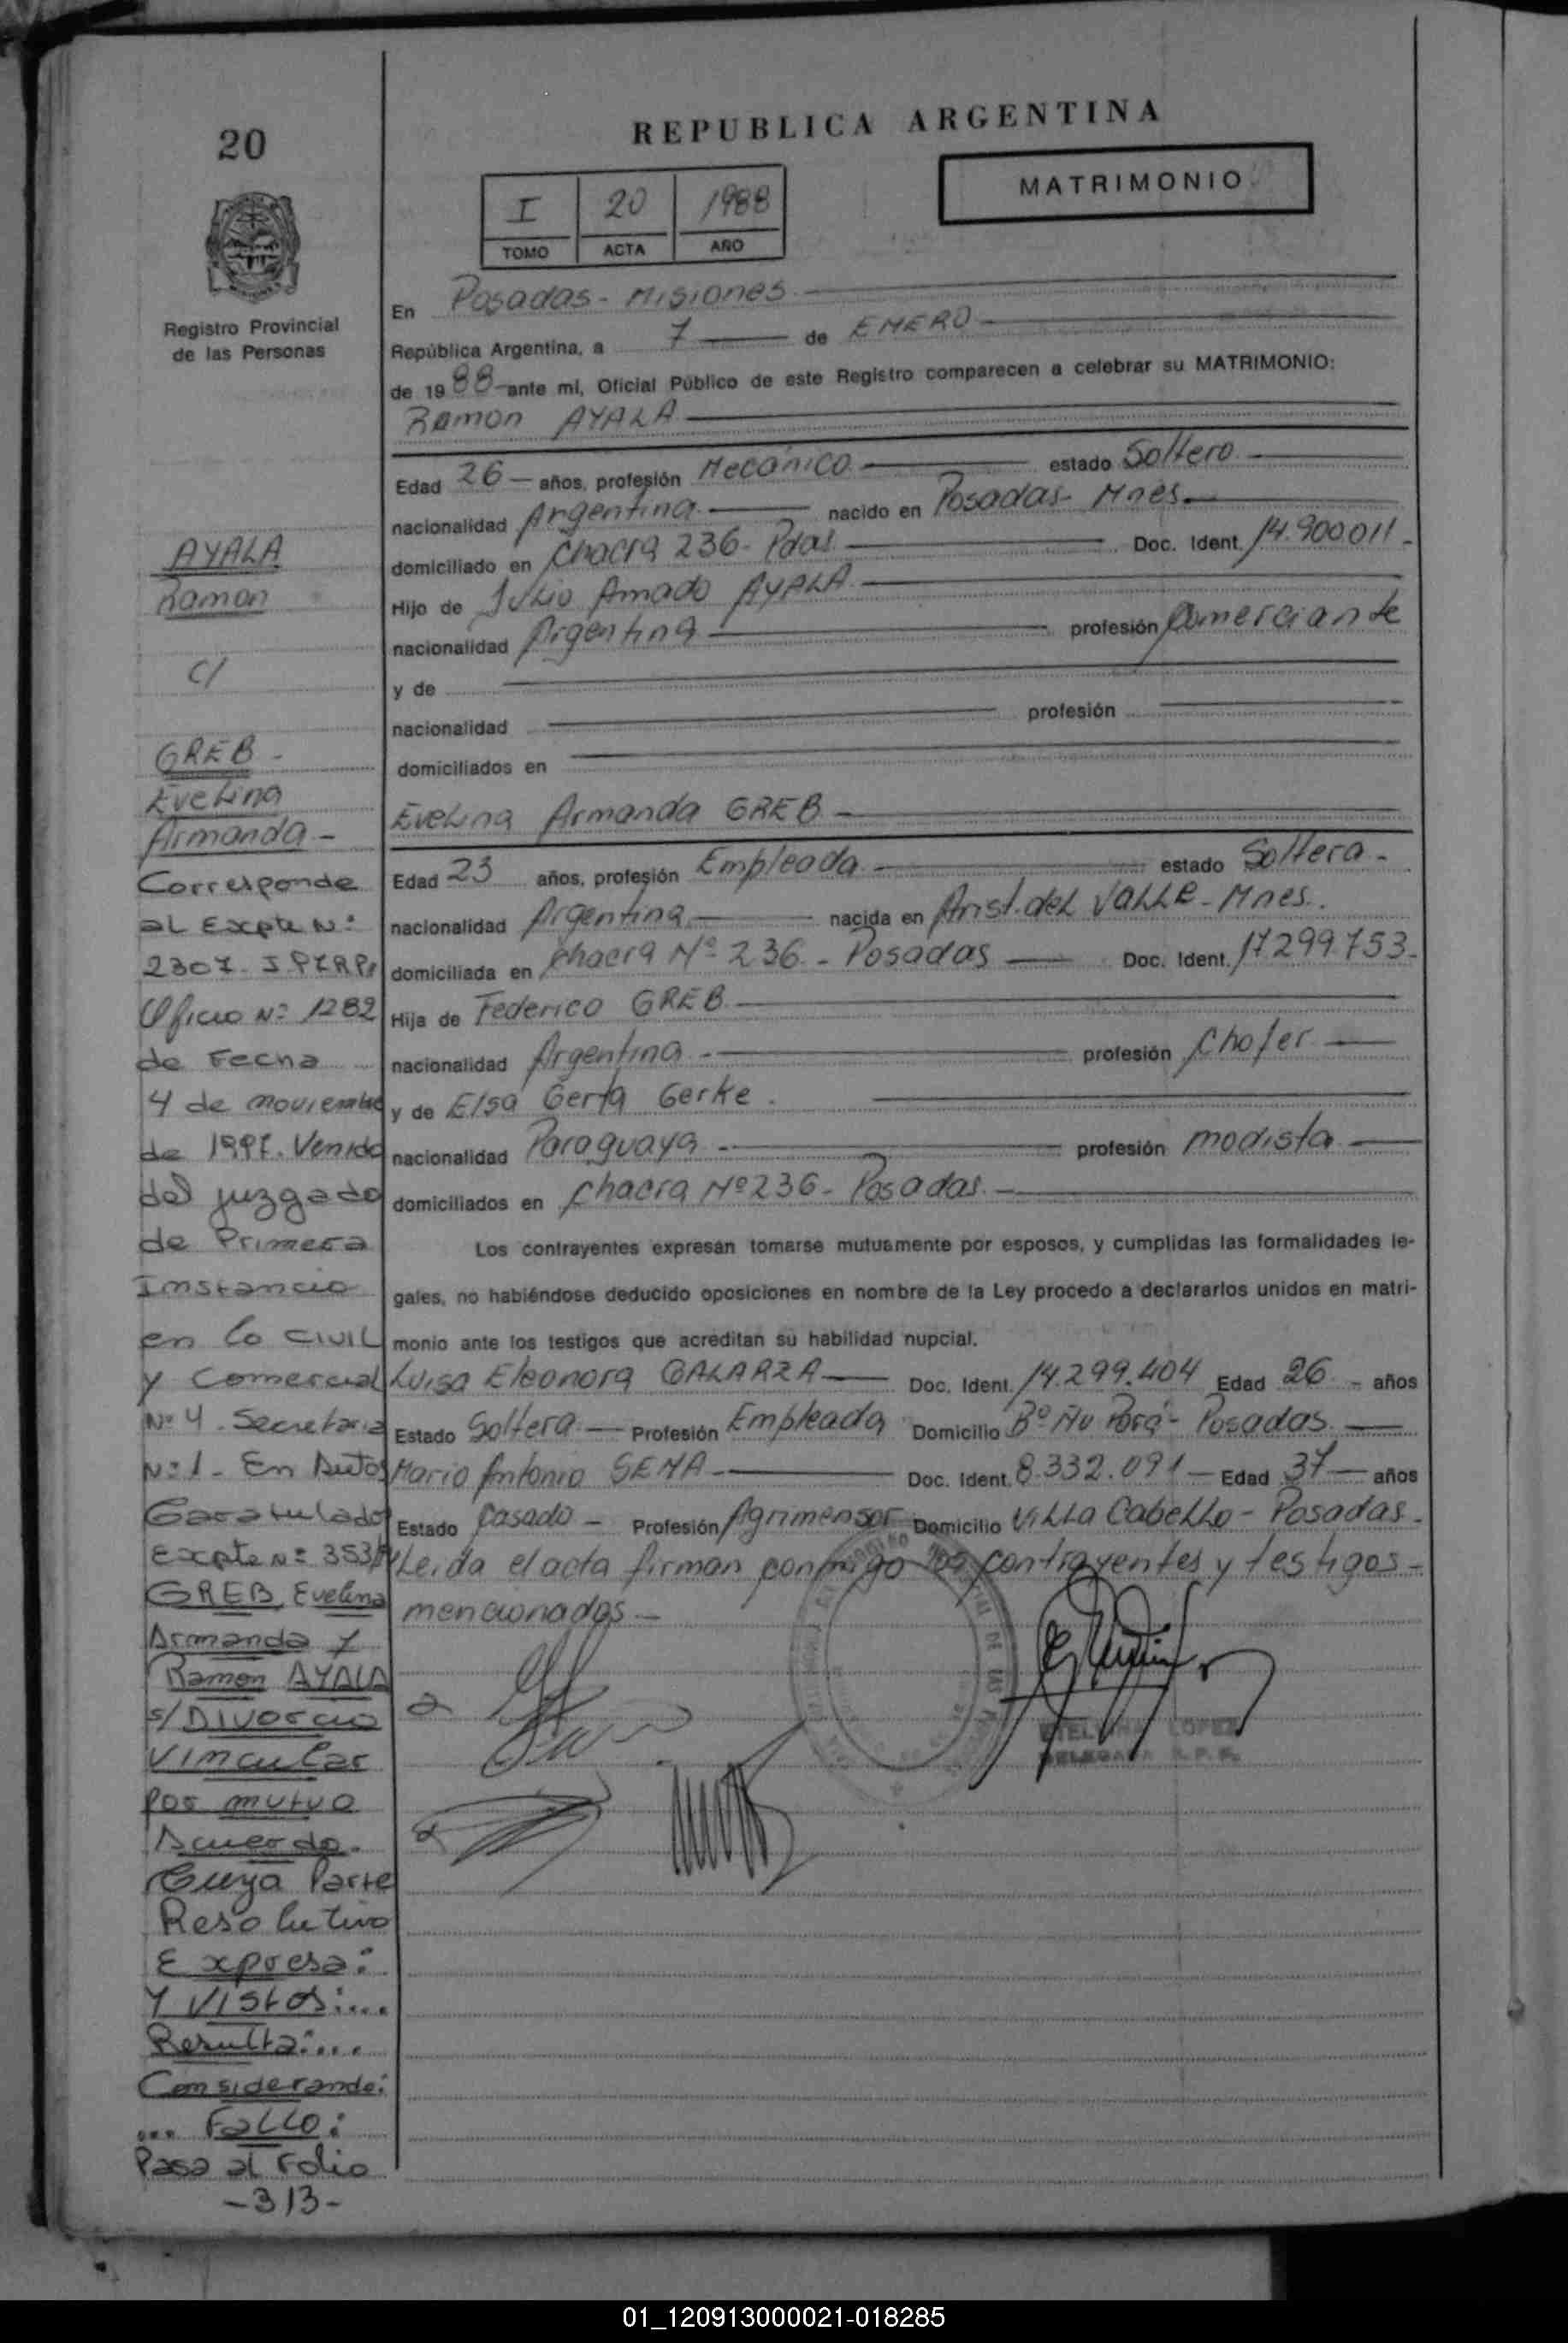 20
Registro Provincial
de las Personas
REPUBLICA ARGENTINA
MATRIMONIO
I 20 1988
TOMO ACTA AÑO
En Posadas - Misiones
República Argentina, a 7 de ENERO
de 1988 ante mi, Oficial Público de este Registro comparecen a celebrar su MATRIMONIO:
Ramon AYALA
Edad 26 años, profesión Mecánico estado Soltero
nacionalidad Argentina nacido en Posadas - Mnes.
domiciliado en Chacra 236 - Pdas. Doc. Ident. 14.900011
Hijo de Julio Amado AYALA
nacionalidad Argentina profesión Comerciante
y de
nacionalidad profesión
domiciliados en
Evelina Armanda GREB
Edad 23 años, profesión Empleada estado Soltera
nacionalidad Argentina nacida en Arist. del VALLE - Mnes.
domiciliada en Chacra Nº 236 - Posadas Doc. Ident. 17.299.753
Hija de Federico GREB
nacionalidad Argentina profesión Chofer
y de Elsa Gerta Gerke
nacionalidad Paraguaya profesión modista
domiciliados en Chacra Nº 236 - Posadas
Los contrayentes expresan tomarse mutuamente por esposos, y cumplidas las formalidades le-
gales, no habiéndose deducido oposiciones en nombre de la Ley procedo a declararlos unidos en matri-
monio ante los testigos que acreditan su habilidad nupcial.
Luisa Eleonora GALARZA Doc. Ident. 14.299.404 Edad 26 años
Estado Soltera Profesión Empleada Domicilio Bº Ñu Porá - Posadas
Mario Antonio SENA Doc. Ident. 8.332.091 Edad 37 años
Estado Casado Profesión Agrimensor Domicilio Villa Cabello - Posadas
Leida el acta firman conmigo los contrayentes y testigos
mencionados
LOPEZ
AYALA
Ramon
C/
GREB
Evelina
Armanda
Corresponde
al Expte Nº
2307
Oficio Nº 1282
de Fecha
4 de noviembre
de 1997. Venido
del juzgado
de Primera
Instancia
en lo civil
y Comercial
Nº 4 - Secretaria
Nº 1 - En Autos
Caratulados
Expte Nº
GREB, Evelina
Armanda y
Ramon AYALA
s/ Divorcio
Vincular
por mutuo
Acuerdo.
Cuya Parte
Resolutiva
Expresa:
Y VISTOS:....
Resulta:...
Considerando:
... Fallo:
Pasa al Folio
-313-
01_120913000021-018285